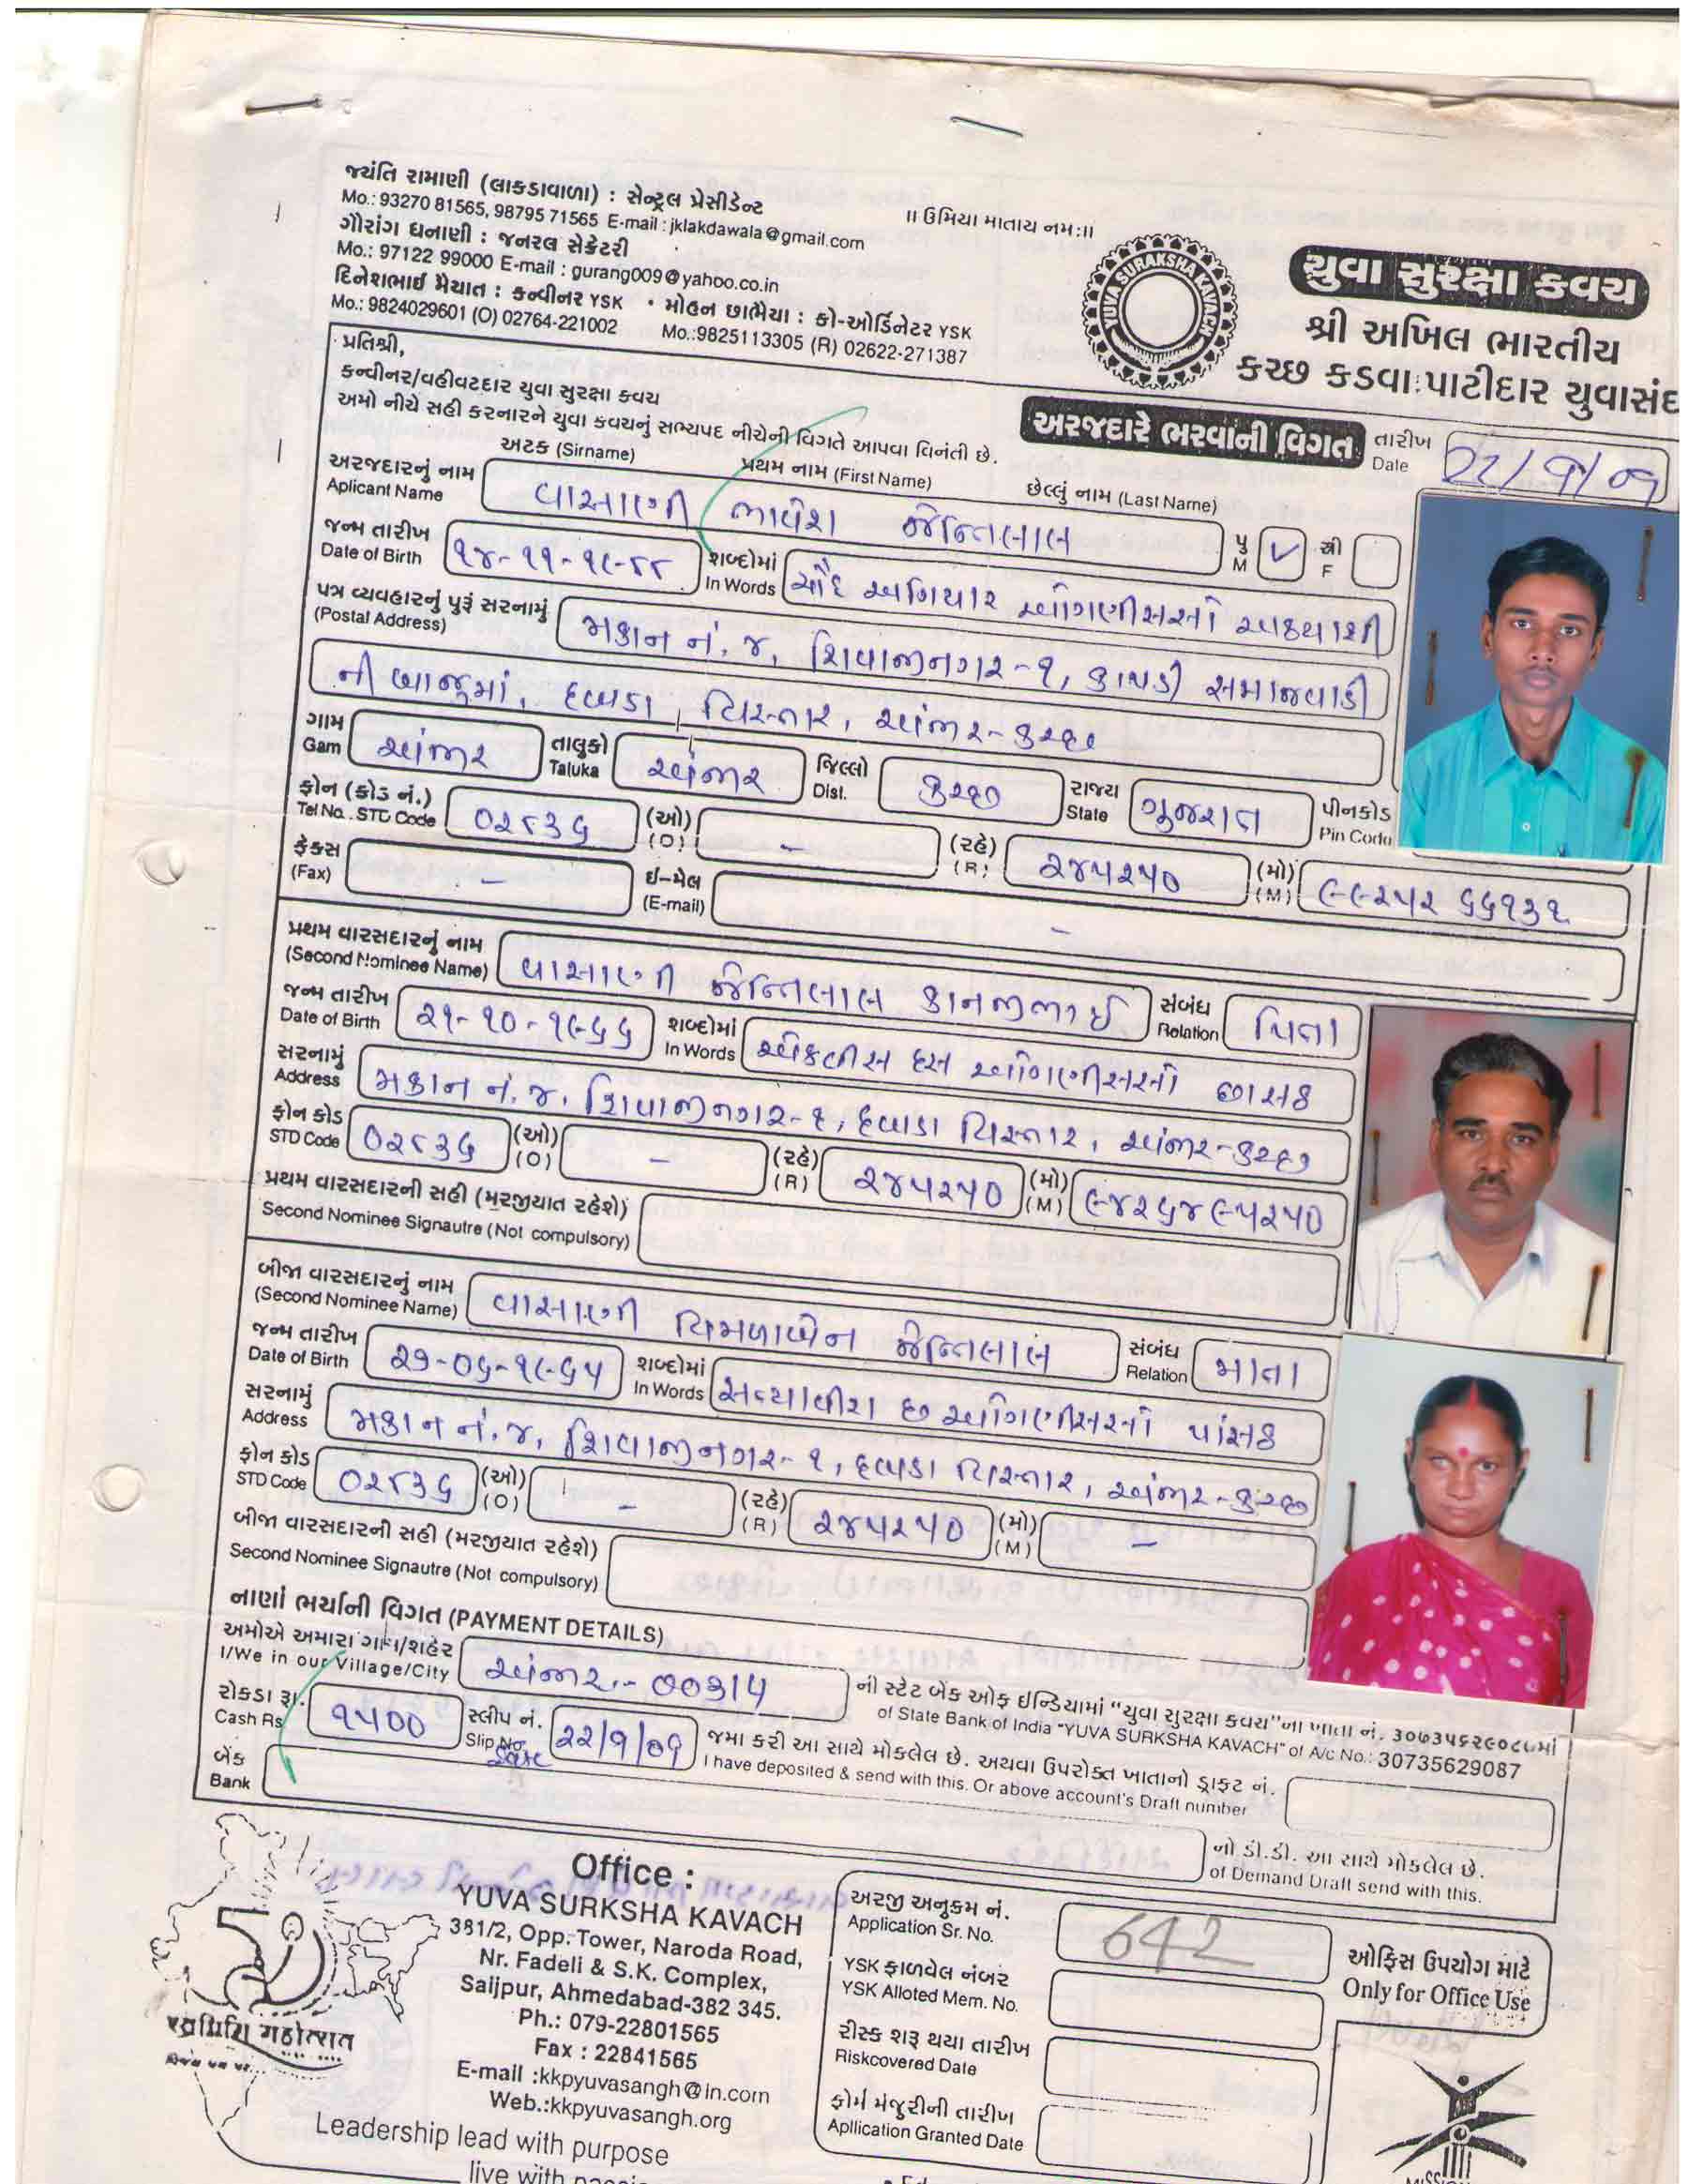 જયંતિ રામાણી (લાકડાવાળા) : સેન્ટ્રલ પ્રેસીડેન્ટ
Mo.: 93270 81565, 98795 71565 E-mail : jklakdawala@gmail.com
ગૌરાંગ ધનાણી : જનરલ સેક્રેટરી
Mo.: 97122 99000 E-mail : gurang009@yahoo.co.in
દિનેશભાઈ મૈયાત : કન્વીનર YSK • મોહન છાભૈયા : કો-ઓર્ડિનેટર YSK
Mo.: 9824029601 (O) 02764-221002 Mo.:9825113305 (R) 02622-271387
॥ ઉમિયા માતાય નમઃ॥
YUVA SURAKSHA KAVACH
યુવા સુરક્ષા કવચ
શ્રી અખિલ ભારતીય
કચ્છ કડવા પાટીદાર યુવાસંઘ
પ્રતિશ્રી,
કન્વીનર/વહીવટદાર યુવા સુરક્ષા કવચ
અમો નીચે સહી કરનારને યુવા કવચનું સભ્યપદ નીચેની વિગતે આપવા વિનંતી છે.
અરજદારે ભરવાની વિગત
તારીખ Date 22/9/09
અટક (Sirname) પ્રથમ નામ (First Name) છેલ્લું નામ (Last Name)
અરજદારનું નામ Aplicant Name વાસાણી ભાવેશ જેન્તિલાલ પુ M ✓ સ્ત્રી F
જન્મ તારીખ Date of Birth ૧૪-૧૧-૧૯૮૮ શબ્દોમાં In Words ચૌદ અગિયાર ઓગણીસસો અઠયાશી
પત્ર વ્યવહારનું પુરૂં સરનામું (Postal Address) મકાન નં. ૪, શિવાજીનગર-૧, કાપડી સમાજવાડી
ની બાજુમાં, હવાડા વિસ્તાર, અંજાર-કચ્છ
ગામ Gam અંજાર તાલુકો Taluka અંજાર જિલ્લો Dist. કચ્છ રાજ્ય State ગુજરાત પીનકોડ Pin Code
ફોન (કોડ નં.) Tel No. STD Code ૦૨૮૩૬ (ઓ) (O) - (રહે) (R) ૨૪૫૨૫૦ (મો) (M) ૯૯૨૫૨ ૬૬૧૩૧
ફેક્સ (Fax) - ઈ-મેલ (E-mail) -
પ્રથમ વારસદારનું નામ (Second Nominee Name) વાસાણી જેન્તિલાલ કાનજીભાઈ સંબંધ Relation પિતા
જન્મ તારીખ Date of Birth ૨૧-૧૦-૧૯૬૬ શબ્દોમાં In Words એકવીસ દસ ઓગણીસસો છાસઠ
સરનામું Address મકાન નં. ૪, શિવાજીનગર-૧, હવાડા વિસ્તાર, અંજાર-કચ્છ
ફોન કોડ STD Code ૦૨૮૩૬ (ઓ) (O) - (રહે) (R) ૨૪૫૨૫૦ (મો) (M) ૯૪૨૬૪૯૫૨૫૦
પ્રથમ વારસદારની સહી (મરજીયાત રહેશે)
Second Nominee Signautre (Not compulsory)
બીજા વારસદારનું નામ (Second Nominee Name) વાસાણી વિમળાબેન જેન્તિલાલ સંબંધ Relation માતા
જન્મ તારીખ Date of Birth ૨૭-૦૬-૧૯૬૫ શબ્દોમાં In Words સત્યાવીશ છ ઓગણીસસો પાંસઠ
સરનામું Address મકાન નં. ૪, શિવાજીનગર-૧, હવાડા વિસ્તાર, અંજાર-કચ્છ
ફોન કોડ STD Code ૦૨૮૩૬ (ઓ) (O) - (રહે) (R) ૨૪૫૨૫૦ (મો) (M) -
બીજા વારસદારની સહી (મરજીયાત રહેશે)
Second Nominee Signautre (Not compulsory)
નાણાં ભર્યાની વિગત (PAYMENT DETAILS)
અમોએ અમારા ગામ/શહેર અંજાર - ની સ્ટેટ બેંક ઓફ ઈન્ડિયામાં "યુવા સુરક્ષા કવચ"ના ખાતા નં. ૩૦૭૩૫૬૨૯૦૮૭માં
I/We in our Village/City of State Bank of India "YUVA SURKSHA KAVACH" of A/c No.: 30735629087
રોકડા રૂ. Cash Rs ૧૫૦૦ સ્લીપ નં. Slip No. Date ૨૨/૧/૦૧ જમા કરી આ સાથે મોકલેલ છે. અથવા ઉપરોક્ત ખાતાનો ડ્રાફ્ટ નં.
I have deposited & send with this. Or above account's Draft number
બેંક Bank નો ડી.ડી. આ સાથે મોકલેલ છે.
of Demand Draft send with this.
Office :
YUVA SURKSHA KAVACH
381/2, Opp. Tower, Naroda Road,
Nr. Fadeli & S.K. Complex,
Saijpur, Ahmedabad-382 345.
Ph.: 079-22801565
Fax : 22841565
E-mail :kkpyuvasangh@in.com
Web.:kkpyuvasangh.org
Leadership lead with purpose
અરજી અનુક્રમ નં. Application Sr. No. 642
YSK ફાળવેલ નંબર YSK Alloted Mem. No.
રીસ્ક શરૂ થયા તારીખ Riskcovered Date
ફોર્મ મંજુરીની તારીખ Apllication Granted Date
ઓફિસ ઉપયોગ માટે
Only for Office Use